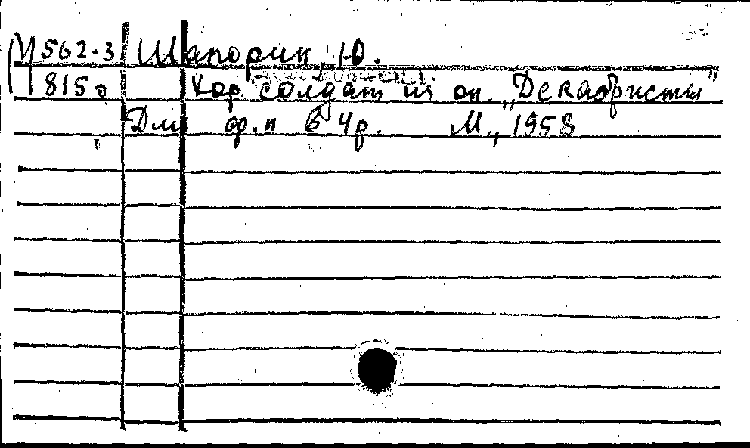 М 562-3 Шапорин, Ю.
815 Хор солдат из оп. „Декабристы"
Для ф.п в 4р. М., 1958